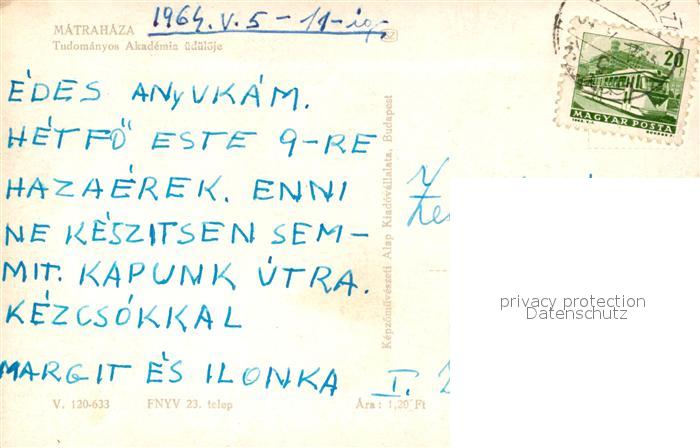 1964. V. 5 - 11-ig.
MÁTRAHÁZA
Tudományos Akadémia üdülője
ÉDES ANYUKÁM.
HÉTFŐ ESTE 9-RE
HAZAÉREK. ENNI
NE KÉSZITSEN SEM-
MIT. KAPUNK ÚTRA.
KÉZCSÓKKAL
MARGIT ÉS ILONKA
V. 120-633 FNYV 23. telep Ára: 1,20 Ft
Képzőművészeti Alap Kiadóvállalata, Budapest
20
MAGYAR POSTA
I.
privacy protection
Datenschutz